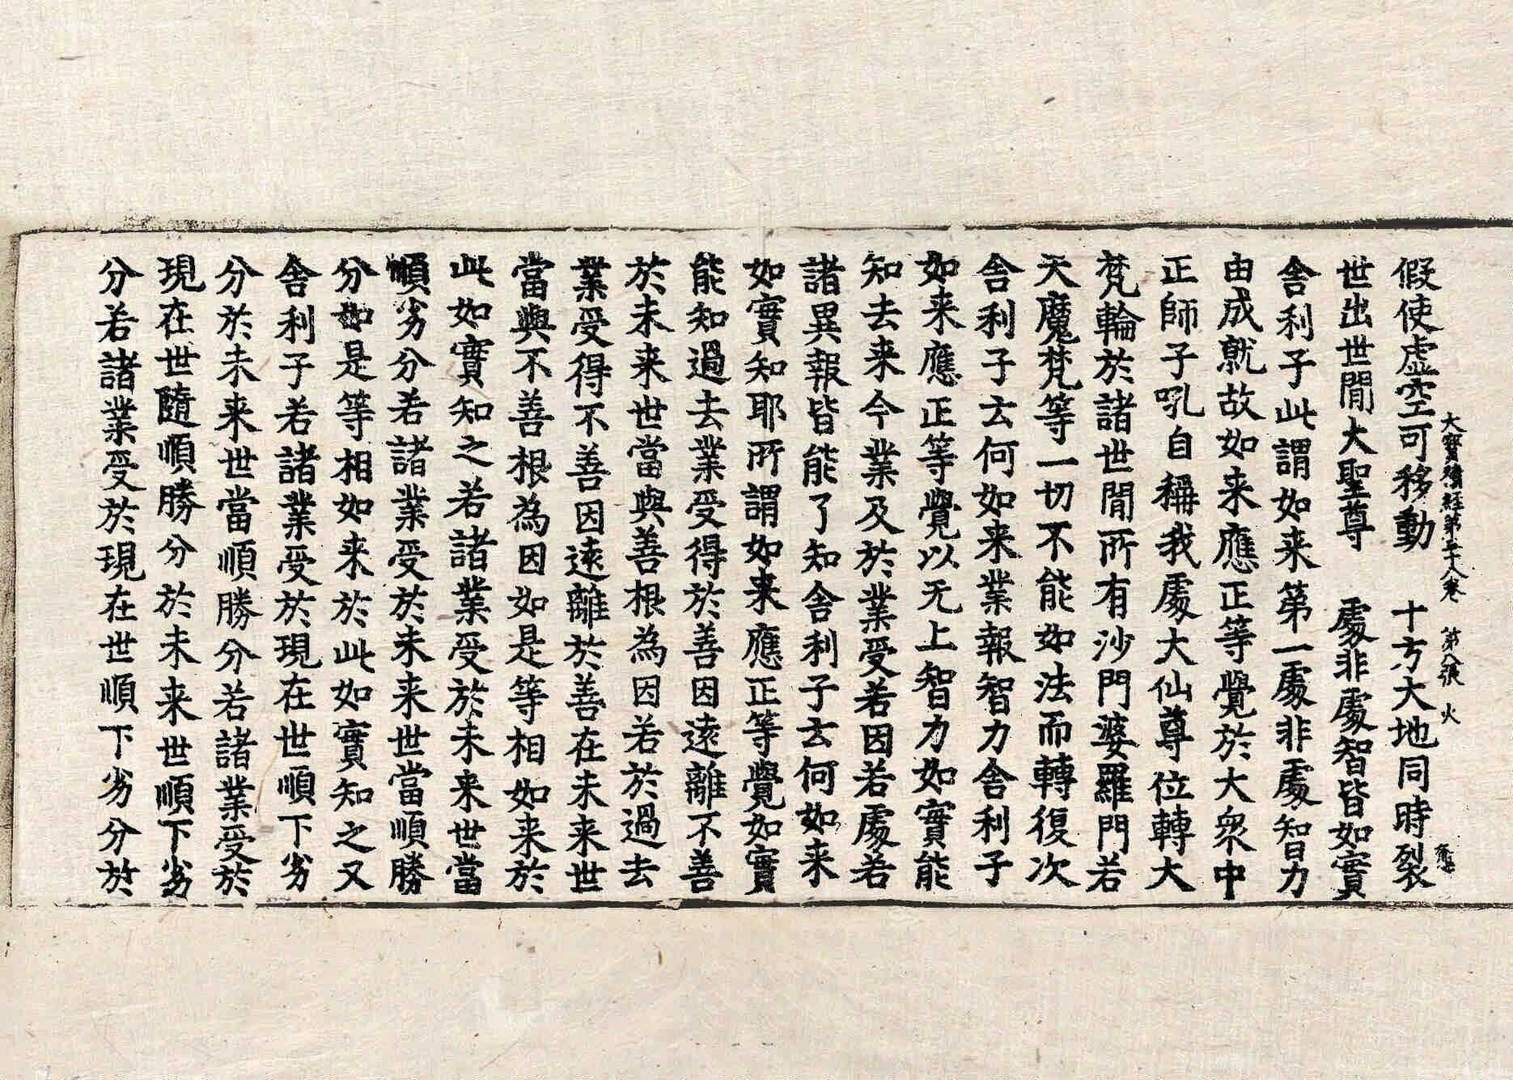 大寳積經第三十八卷 第八張 火
假使虛空可移動 十方大地同時裂
世出世閒大聖尊 處非處智皆如實
舍利子此謂如来第一處非處智力
由成就故如来應正等覺於大衆中
正師子吼自稱我處大仙尊位轉大
梵輪於諸世閒所有沙門婆羅門若
天魔梵等一切不能如法而轉復次
舍利子云何如来業報智力舍利子
如来應正等覺以无上智力如實能
知去来今業及於業受若因若處若
諸異報皆能了知舍利子云何如来
如實知耶所謂如来應正等覺如實
能知過去業受得於善因遠離不善
於未来世當與善根為因若於過去
業受得不善因遠離於善在未来世
當與不善根為因如是等相如来於
此如實知之若諸業受於未来世當
順劣分若諸業受於未来世當順勝
分如是等相如来於此如實知之又
舍利子若諸業受於現在世順下劣
分於未来世當順勝分若諸業受於
現在世隨順勝分於未来世順下劣
分若諸業受於現在世順下劣分於